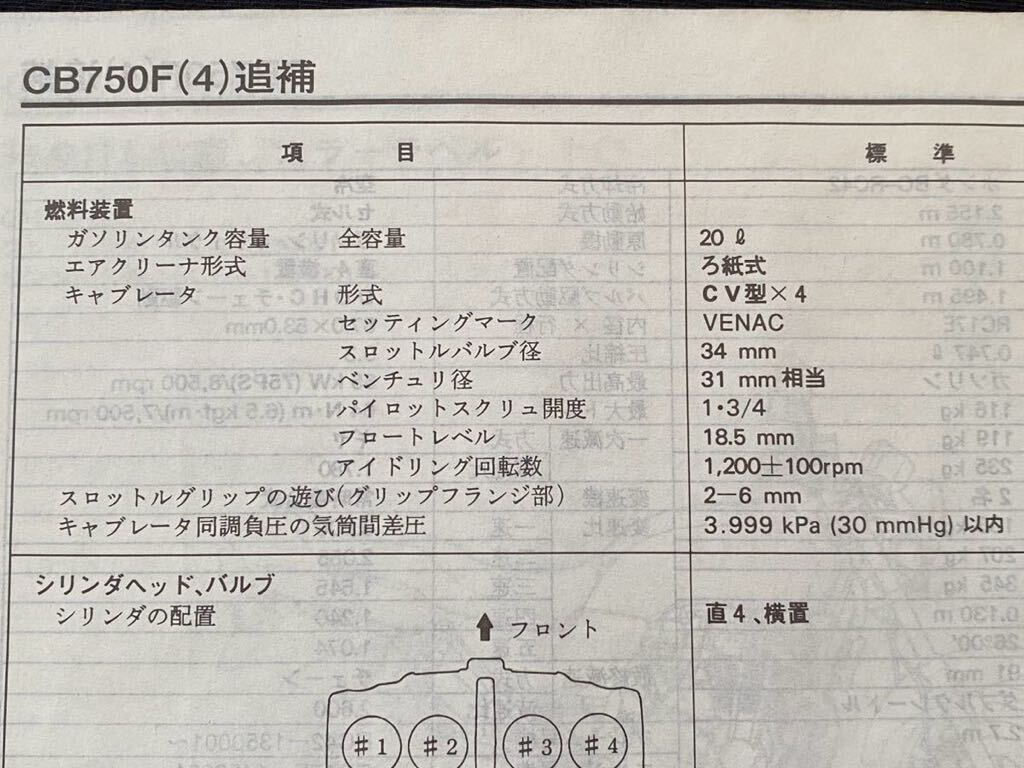 CB750F(4)追補
項 目 標 準
燃料装置
ガソリンタンク容量 全容量 20 ℓ
エアクリーナ形式 ろ紙式
キャブレータ 形式 CV型×4
セッティングマーク VENAC
スロットルバルブ径 34 mm
ベンチュリ径 31 mm相当
パイロットスクリュ開度 1・3/4
フロートレベル 18.5 mm
アイドリング回転数 1,200±100rpm
スロットルグリップの遊び(グリップフランジ部) 2−6 mm
キャブレータ同調負圧の気筒間差圧 3.999 kPa (30 mmHg) 以内
シリンダヘッド、バルブ
シリンダの配置 直4、横置
フロント
#1 #2 #3 #4